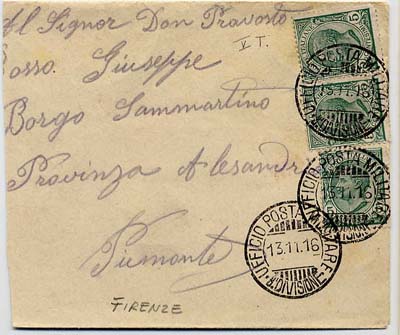 Al Signor Don Pravosto
V T.
osso. Giuseppe
Borgo Sammartino
Provinza Alesandri
Piemonte
FIRENZE
UFFICIO POSTA MILITARE
13.11.16
DIVISIONE
UFFICIO POSTA MILITARE
13.11.16
DIVISIONE
UFFICIO POSTA MILITARE
13.11.16
DIVISIONE